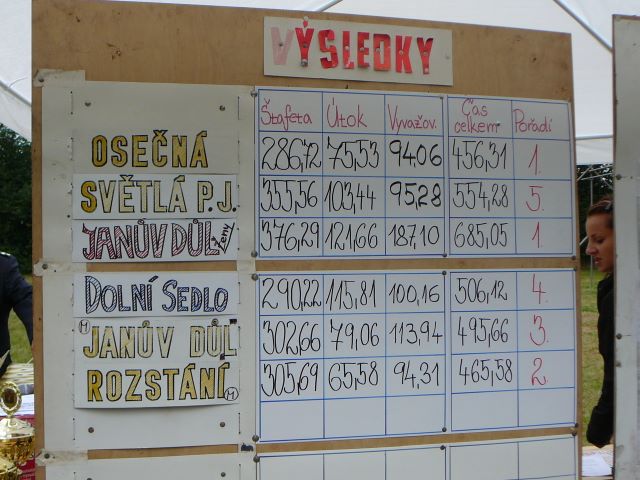 VÝSLEDKY
Štafeta Útok Vyvažov. Čas celkem Pořadí
OSEČNÁ 286,72 75,53 94,06 456,31 1.
SVĚTLÁ P.J. 355,56 103,44 95,28 554,28 5.
JANŮV DŮL ženy 376,29 121,66 187,10 685,05 1.
DOLNÍ SEDLO 290,22 115,81 100,16 506,12 4.
(M) JANŮV DŮL 302,66 79,06 113,94 495,66 3.
ROZSTÁNÍ (M) 305,69 65,58 94,31 465,58 2.